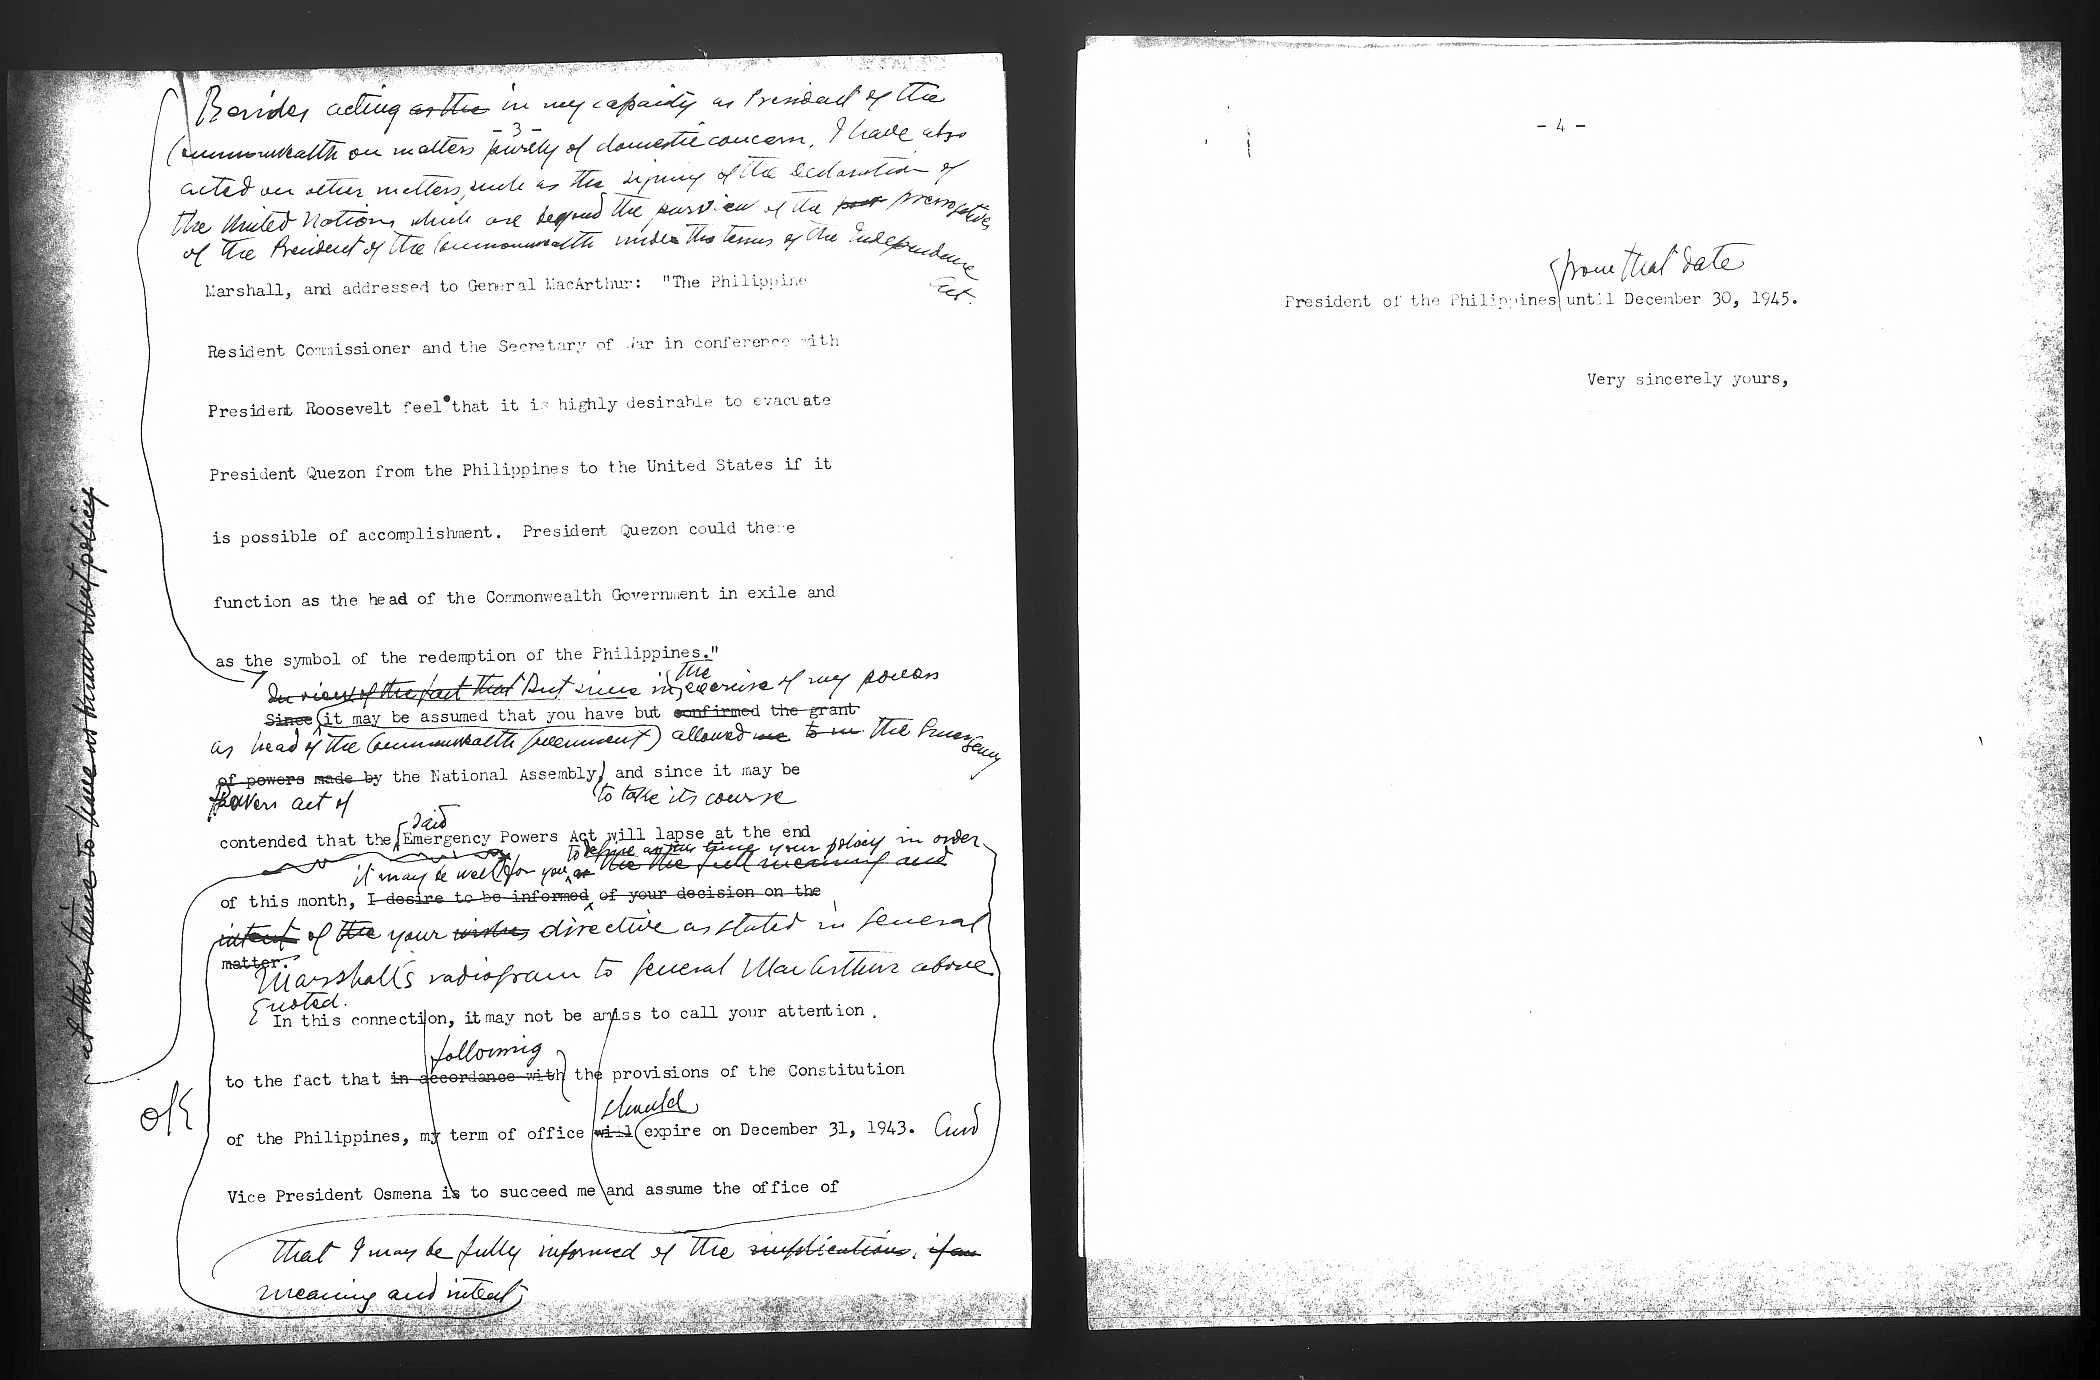 Besides acting as the in my capacity as President of the
- 3 -
Commonwealth on matters purely of domestic concern, I have also
acted on other matters, such as the signing of the Declaration of
the United Nations which are beyond the purview of the prerogatives
of the President of the Commonwealth under the terms of the Independence
Act.
Marshall, and addressed to General MacArthur: "The Philippine
Resident Commissioner and the Secretary of War in conference with
President Roosevelt feel that it is highly desirable to evacuate
President Quezon from the Philippines to the United States if it
is possible of accomplishment. President Quezon could there
function as the head of the Commonwealth Government in exile and
as the symbol of the redemption of the Philippines."
the
In view of the fact that But since in exercise of my powers
Since it may be assumed that you have but confirmed the grant
as head of the Commonwealth Government) allowed me to me the Emergency
of powers made by the National Assembly, and since it may be
Powers act of to take its course
said
contended that the Emergency Powers Act will lapse at the end
to define at this time your policy in order
it may be well for you the the full meaning and
of this month, I desire to be informed of your decision on the
intent of the your wishes directive as stated in General
matter.
Marshall's radiogram to General MacArthur above
quoted.
In this connection, it may not be amiss to call your attention.
following
to the fact that in accordance with the provisions of the Constitution
should
of the Philippines, my term of office will expire on December 31, 1943. And
Vice President Osmena is to succeed me and assume the office of
that I may be fully informed of the implications, if an
meaning and intent
at this time to have us know what policy
OK
- 4 -
from that date
President of the Philippines until December 30, 1945.
Very sincerely yours,